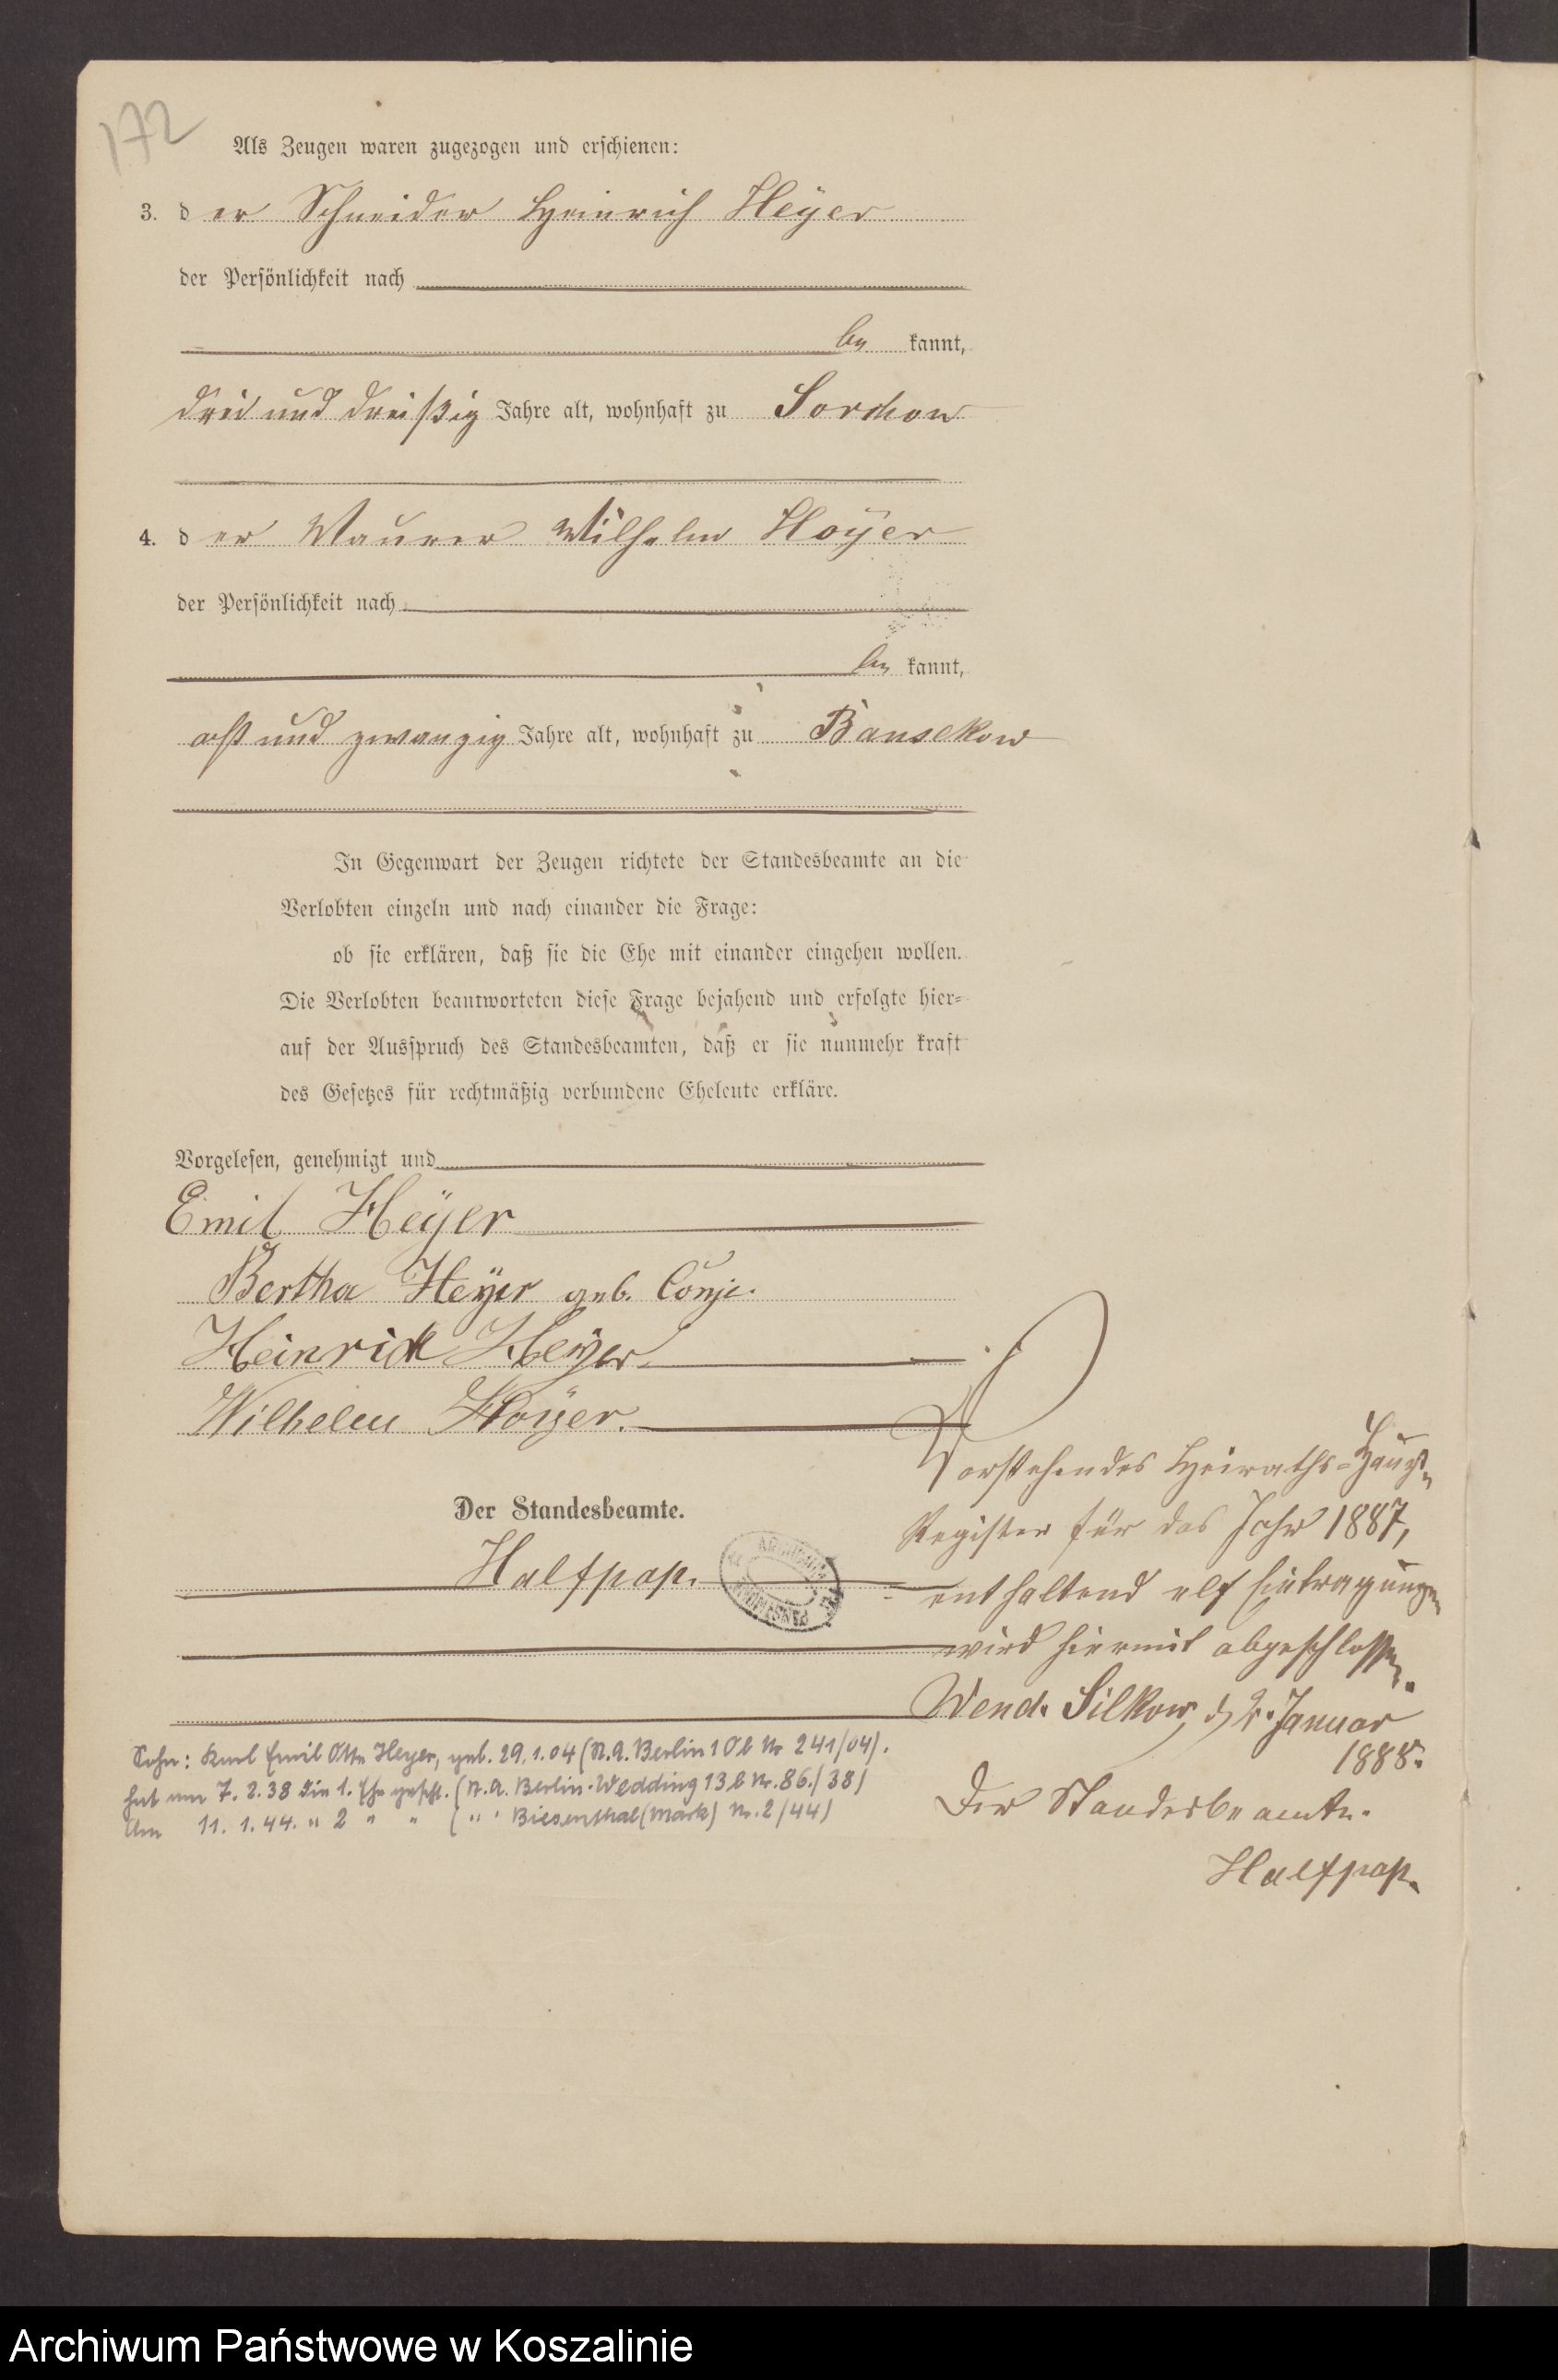 172
Als Zeugen waren zugezogen und erschienen:
3. der Schneider Heinrich Heÿer
der Persönlichkeit nach
be kannt,
drei und dreißig Jahre alt, wohnhaft zu Sorchow
4. der Maurer Wilhelm Hoÿer
der Persönlichkeit nach
be kannt,
acht und zwanzig Jahre alt, wohnhaft zu Bansekow
In Gegenwart der Zeugen richtete der Standesbeamte an die
Verlobten einzeln und nach einander die Frage:
ob sie erklären, daß sie die Ehe mit einander eingehen wollen.
Die Verlobten beantworteten diese Frage bejahend und erfolgte hier=
auf der Ausspruch des Standesbeamten, daß er sie nunmehr kraft
des Gesetzes für rechtmäßig verbundene Eheleute erkläre.
Vorgelesen, genehmigt und
Emil Heÿer
Bertha Heÿer geb. Conje.
Heinrich Heÿer
Wilhelm Hoÿer.
Der Standesbeamte.
Halfpap.
Vorstehendes Heiraths=Haupt=
Register für das Jahr 1887,
enthaltend elf Eintragungen
wird hiermit abgeschlossen.
Wend. Silkow, d. 2. Januar
1888.
Der Standesbeamte.
Halfpap.
Sohn: Karl Emil Otto Heyer, geb. 29.1.04 (St.A. Berlin 10b Nr 241/04).
hat am 7.2.38 die 1. Ehe geschl. (St.A. Berlin-Wedding 13b Nr. 86/38)
Am 11.1.44. " 2 " " ( " " Biesenthal (Mark) Nr. 2/44)
Archiwum Państwowe w Koszalinie